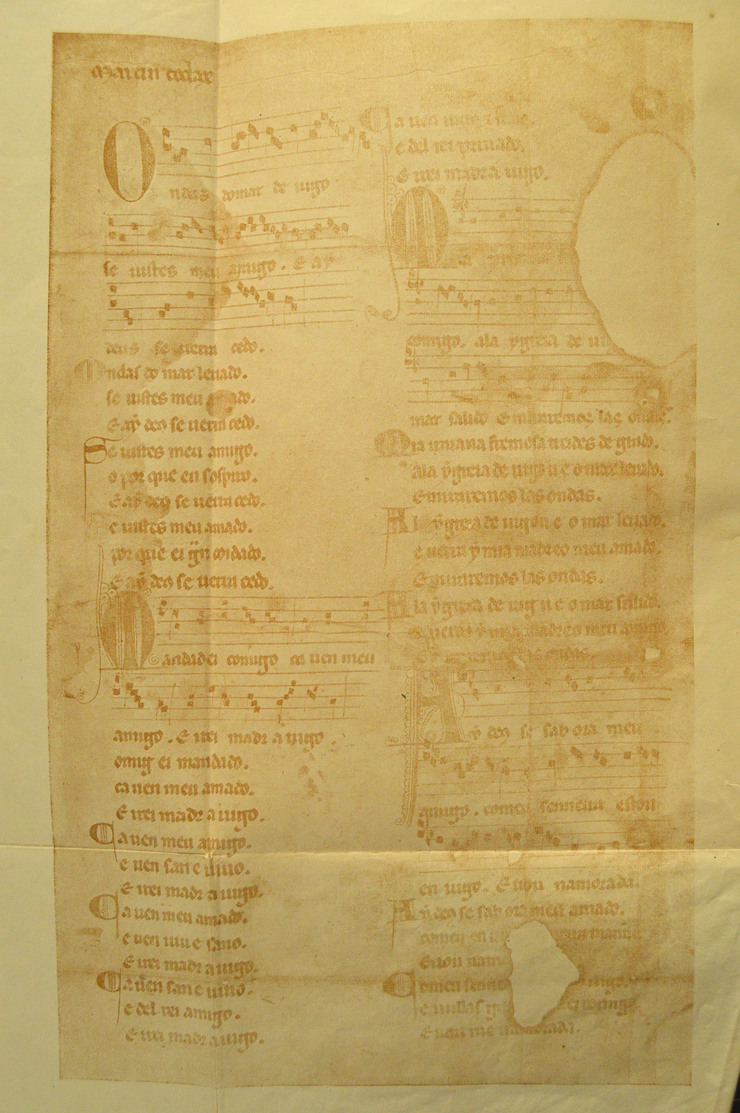 martin codax
Ondas do mar de uigo
se uistes meu amigo. E ay
deus se uerra cedo.
Ondas do mar leuado.
se uistes meu amado.
E ay deo se uerra cedo.
Se uistes meu amigo.
o por que eu sospiro.
E ay deo se uerra cedo.
Se uistes meu amado.
por que ei gñ coidado.
E ay deo se uerra cedo.
Mandadei comigo ca uen meu
amigo. E irei madr a uigo
omig ei mandado.
ca uen meu amado.
E irei madr a uigo.
Ca uen meu amigo.
e uen san e uiuo.
E irei madr a uigo.
Ca uen meu amado.
e uen uiu e sano.
E irei madr a uigo.
Ca uen san e uiuo.
e del rei amigo.
E irei madr a uigo.
Ca uen uiu e sano.
e del rei priuado.
E irei madr a uigo.
M
comigo. ala ygreia de
mar salido E miraremos las ondas.
Mia yrmana fremosa treides de grado.
ala ygreia de uig u e o mar leuado.
E miraremos las ondas.
A la ygreia de uig u e o mar leuado.
e uerra y mia madre o meu amado.
E miraremos las ondas.
A la ygreia de uig u e o mar salido.
e uerra y mia madre o meu amigo
E miraremos las ondas.
Ay deo se sab ora meu
amigo. comeu senneira estou
en uigo. E uou namorada.
Ay deo se sab ora meu amado.
comeu en
E uou nam
Comeu senne uigo.
e nullas g ei comigo
E uou namorada.